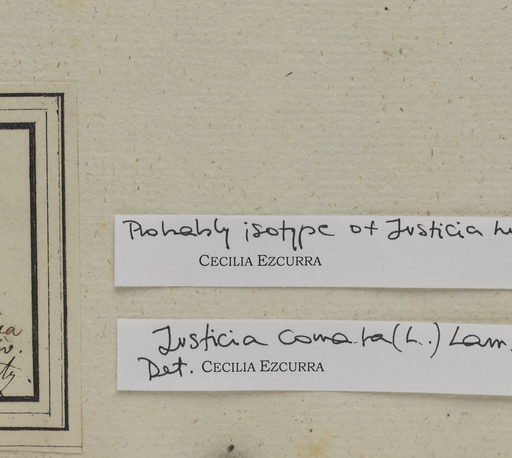 Probably isotype of Justicia
CECILIA EZCURRA
Justicia comata (L.) Lam.
Det. CECILIA EZCURRA